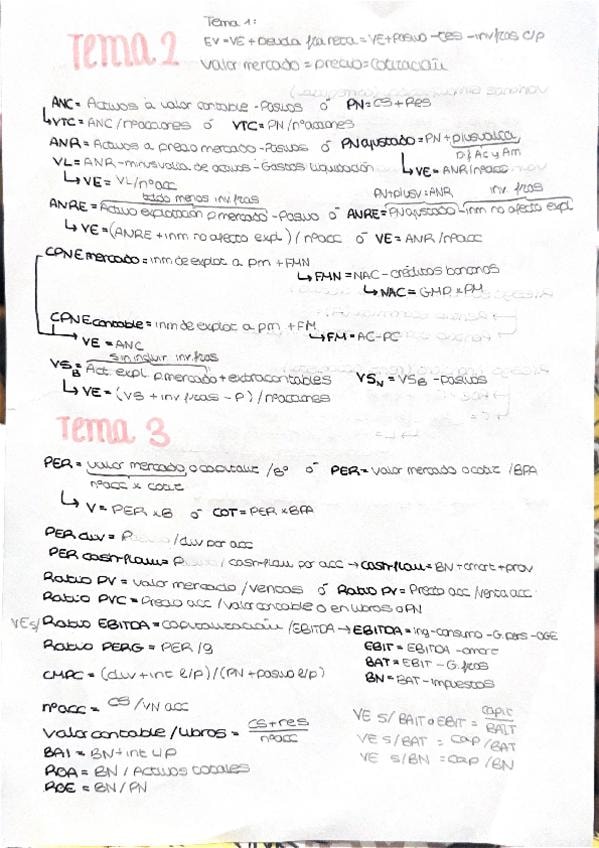 Tema 1:
Tema 2
EV = VE + Deuda fra neta = VE + Pasivo - tes - inv fras c/p
Valor mercado = precio = cotización
ANC = Activos a valor contable - Pasivos ó PN = CS + Res
↳ VTC = ANC / nº acciones ó VTC = PN / nº acciones
ANR = Activos a precio mercado - Pasivos ó PN ajustado = PN + plusvalía
Dif Ac y Am
VL = ANR - minusvalía de activos - Gastos liquidación
↳ VE = ANR / nº acc
↳ VE = VL / nº acc
PN + plusv = ANR inv. fras
todo menos inv. fras
ANRE = Activo explotación p mercado - Pasivo ó ANRE = PN ajustado - inm no afecto expl
↳ VE = (ANRE + inm no afecto expl) / nº acc ó VE = ANR / nº acc
CPNE mercado = inm de explot a pm + FMN
↳ FMN = NAC - créditos bancarios
↳ NAC = GMP x PM
CPNE contable = inm de explot a pm + FM
↳ FM = AC - PC
↳ VE = ANC
sin incluir inv. fras
VS_B = Act. expl. p. mercado + extracontables VS_N = VS_B - Pasivos
↳ VE = (VS + inv fras - P) / nº acciones
Tema 3
PER = valor mercado o capitaliz / Bº ó PER = valor mercado o cotiz / BPA
nº acc x cotiz
↳ V = PER x B ó COT = PER x BPA
PER div = P / div por acc
PER cash-flow = P / cash-flow por acc → cash-flow = BN + amort + prov
Ratio PV = Valor mercado / Ventas ó Ratio PV = Precio acc / venta acc
Ratio PVC = Precio acc / valor contable o en libros o PN
VE s/ Ratio EBITDA = capitalización / EBITDA → EBITDA = ing - consumo - G. pers - OGE
Ratio PERG = PER / g
EBIT = EBITDA - amort
BAT = EBIT - G. fros
CMPC = (div + int l/p) / (PN + pasivo l/p)
BN = BAT - impuestos
nº acc = CS / VN acc
VE s/ BAIT o EBIT = Capit / BAIT
Valor contable / libros = CS + res / nº acc
VE s/ BAT = Cap / BAT
BAI = BN + int l/p
VE s/ BN = Cap / BN
ROA = BN / Activos totales
ROE = BN / PN